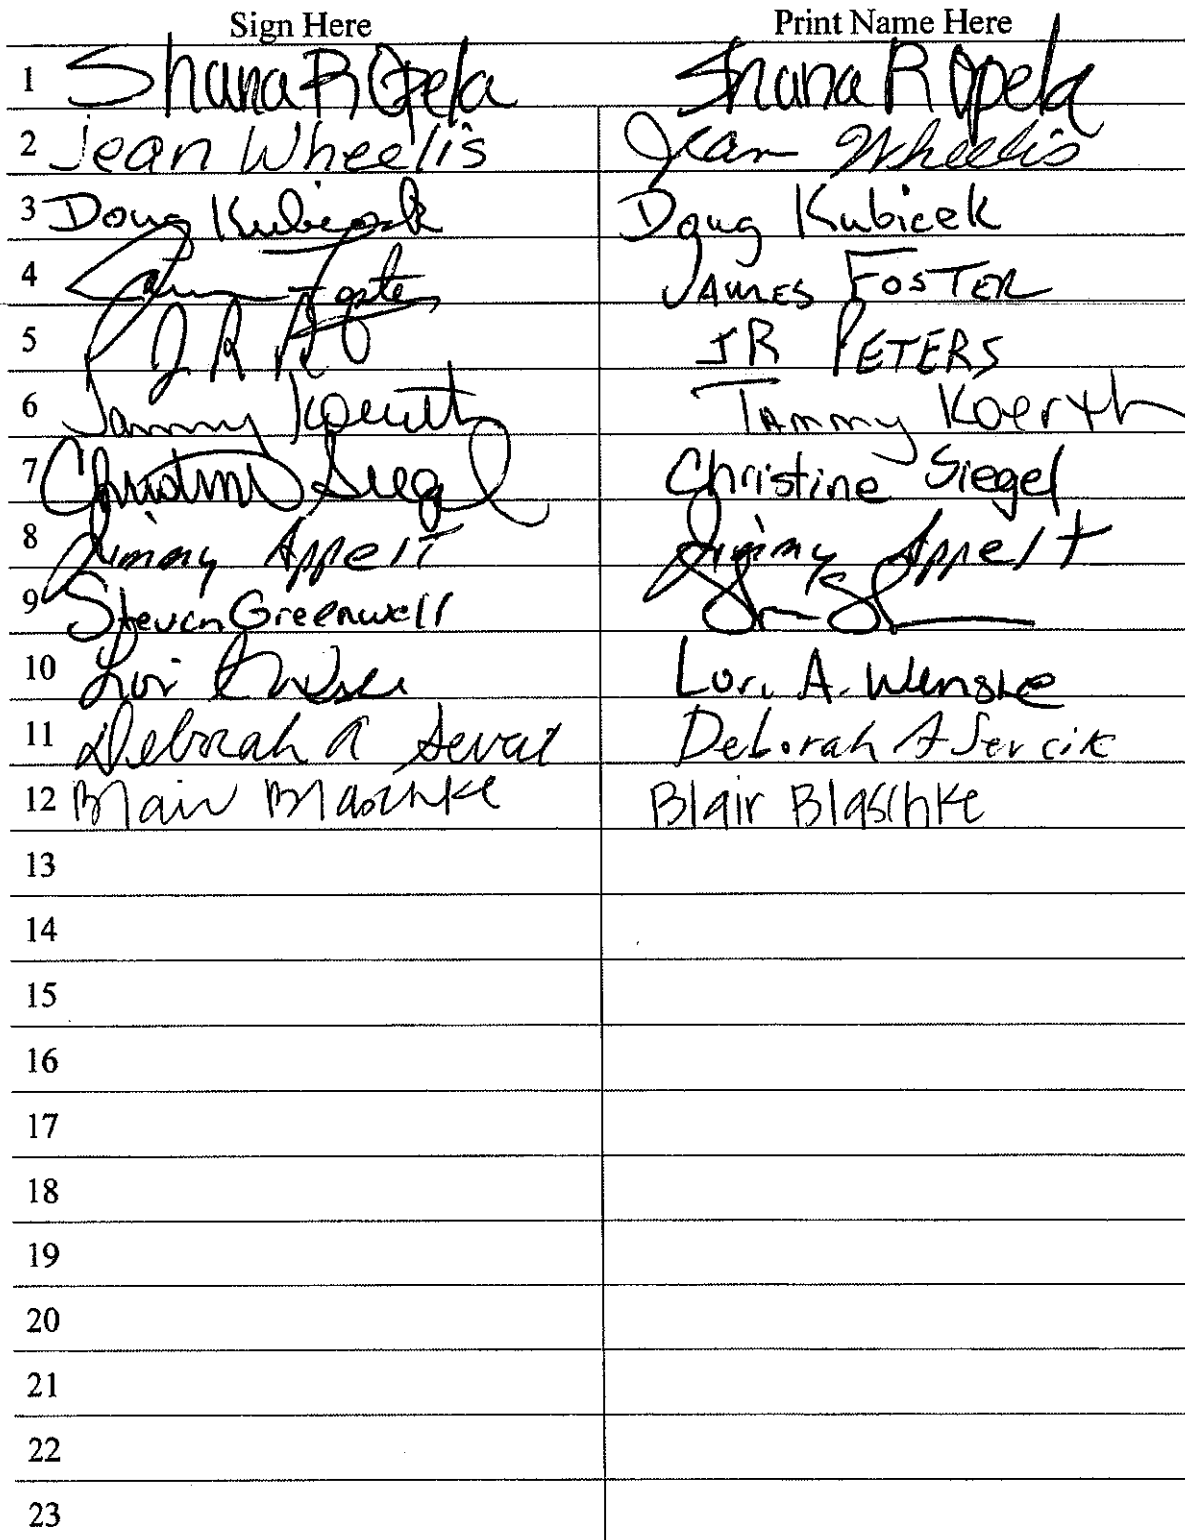 Sign Here Print Name Here
1 Shana R Opela Shana R Opela
2 Jean Wheelis Jean Wheelis
3 Doug Kubicek Doug Kubicek
4 James Foster JAMES FOSTER
5 J R JR PETERS
6 Tammy Koerth TAmmy Koerth
7 Christine Siegel Christine Siegel
8 Jimmy Appelt Jimmy Appelt
9 Steven Greenwell
10 Lori Lori A. Wenske
11 Deborah A Sevcik Deborah A Sevcik
12 Blair Blaschke Blair Blaschke
13
14
15
16
17
18
19
20
21
22
23